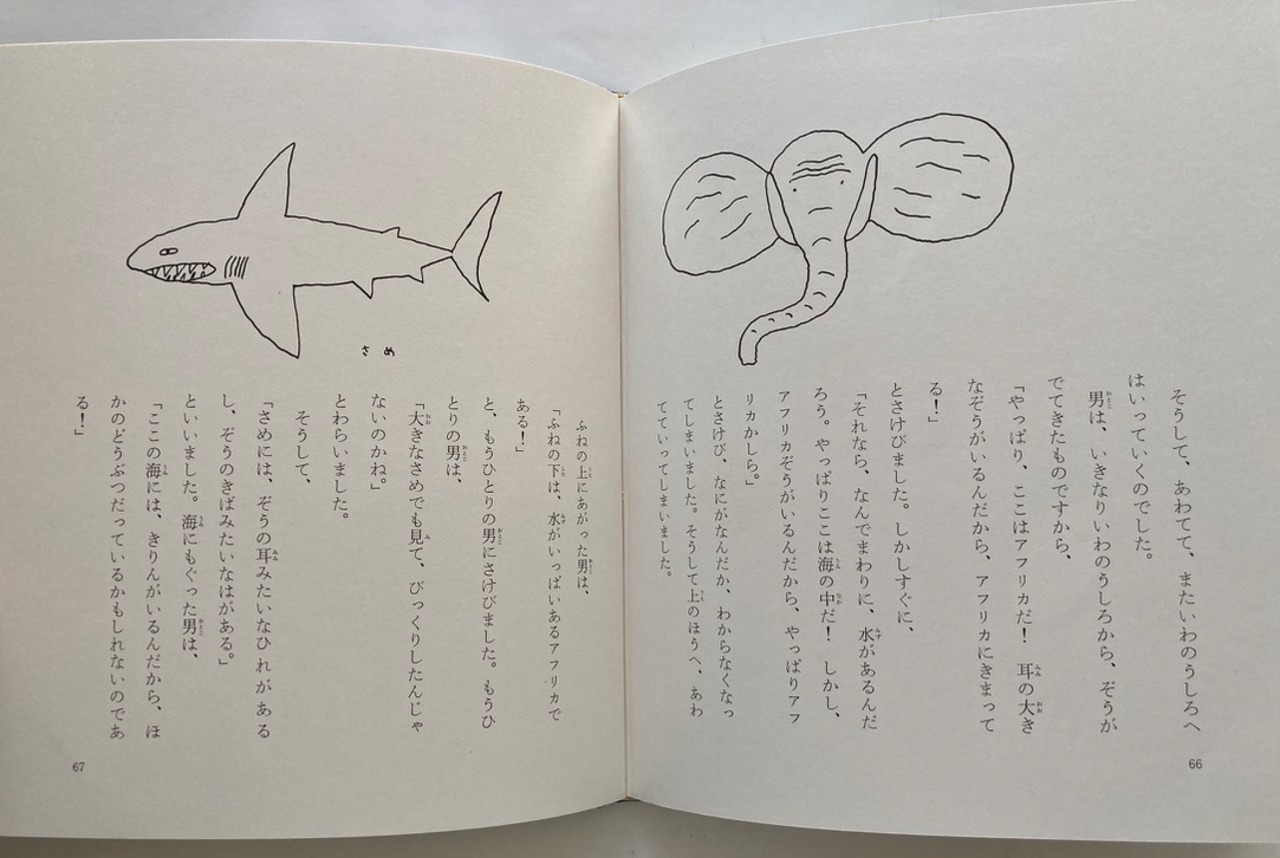 そうして、あわてて、またいわのうしろへ
はいっていくのでした。
男は、いきなりいわのうしろから、ぞうが
でてきたものですから、
「やっぱり、ここはアフリカだ！　耳の大き
なぞうがいるんだから、アフリカにきまって
る！」
とさけびました。しかしすぐに、
「それなら、なんでまわりに、水があるんだ
ろう。やっぱりここは海の中だ！　しかし、
アフリカぞうがいるんだから、やっぱりアフ
リカかしら。」
とさけび、なにがなんだか、わからなくなっ
てしまいました。そうして上のほうへ、あわ
てていってしまいました。
66
さめ
ふねの上にあがった男は、
「ふねの下は、水がいっぱいあるアフリカで
ある！」
と、もうひとりの男にさけびました。もうひ
とりの男は、
「大きなさめでも見て、びっくりしたんじゃ
ないのかね。」
とわらいました。
そうして、
「さめには、ぞうの耳みたいなひれがある
し、ぞうのきばみたいなはがある。」
といいました。海にもぐった男は、
「ここの海には、きりんがいるんだから、ほ
かのどうぶつだっているかもしれないのであ
る！」
67